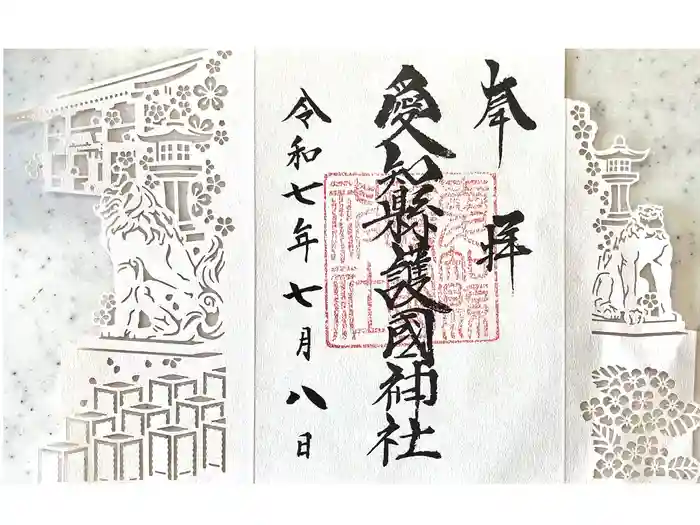 奉拝
愛知縣護國神社
令和七年七月八日